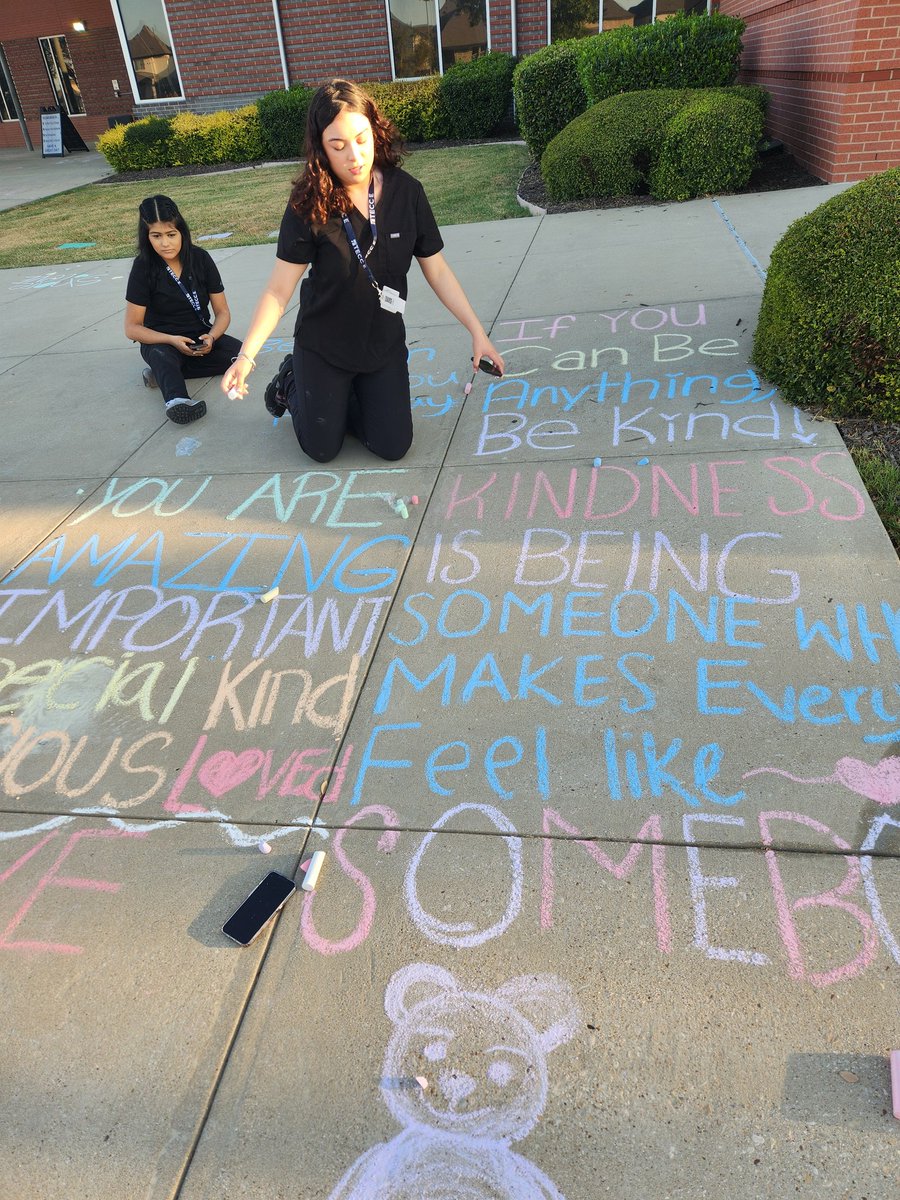 TECC-E
If YOU
Can Be
Anything,
Be Kind!
YOU ARE
AMAZING
IMPORTANT
pecial Kind
IOUS LOVED
KINDNESS
IS BEING
SOMEONE WH
MAKES Every
Feel like
SOMEBO